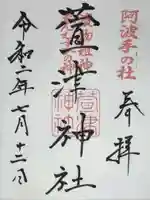 阿波手の杜
奉拝
萱津神社
令和二年七月十二日